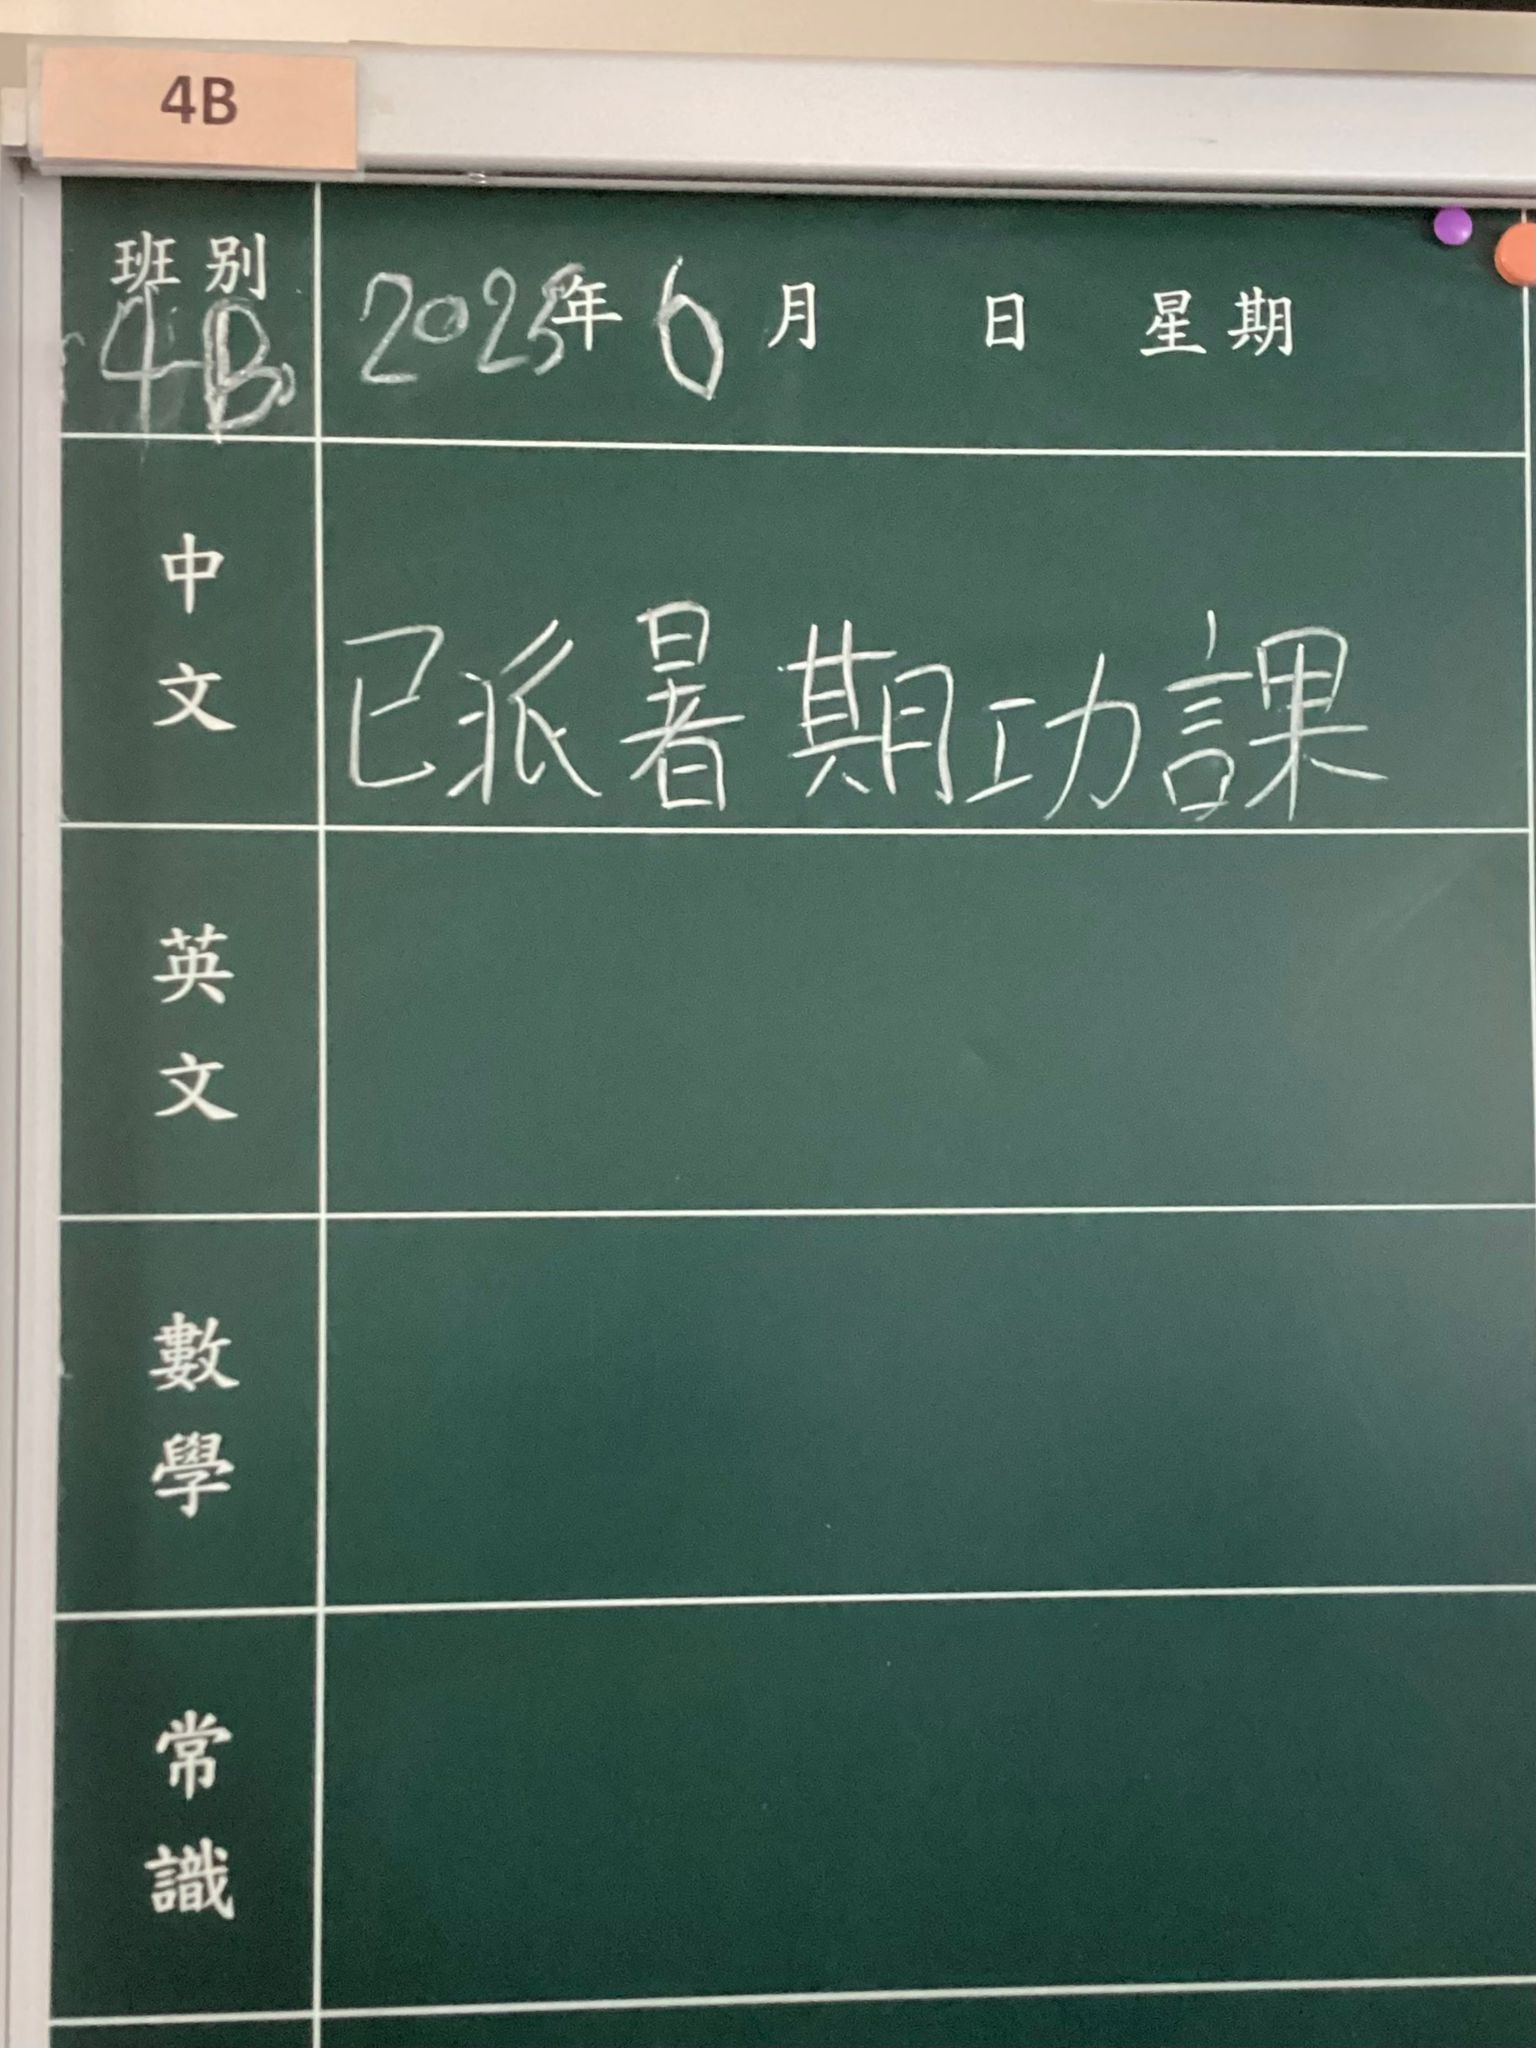 4B
班別
4B
2025年6月 日 星期
中文
已派暑期功課
英文
數學
常識